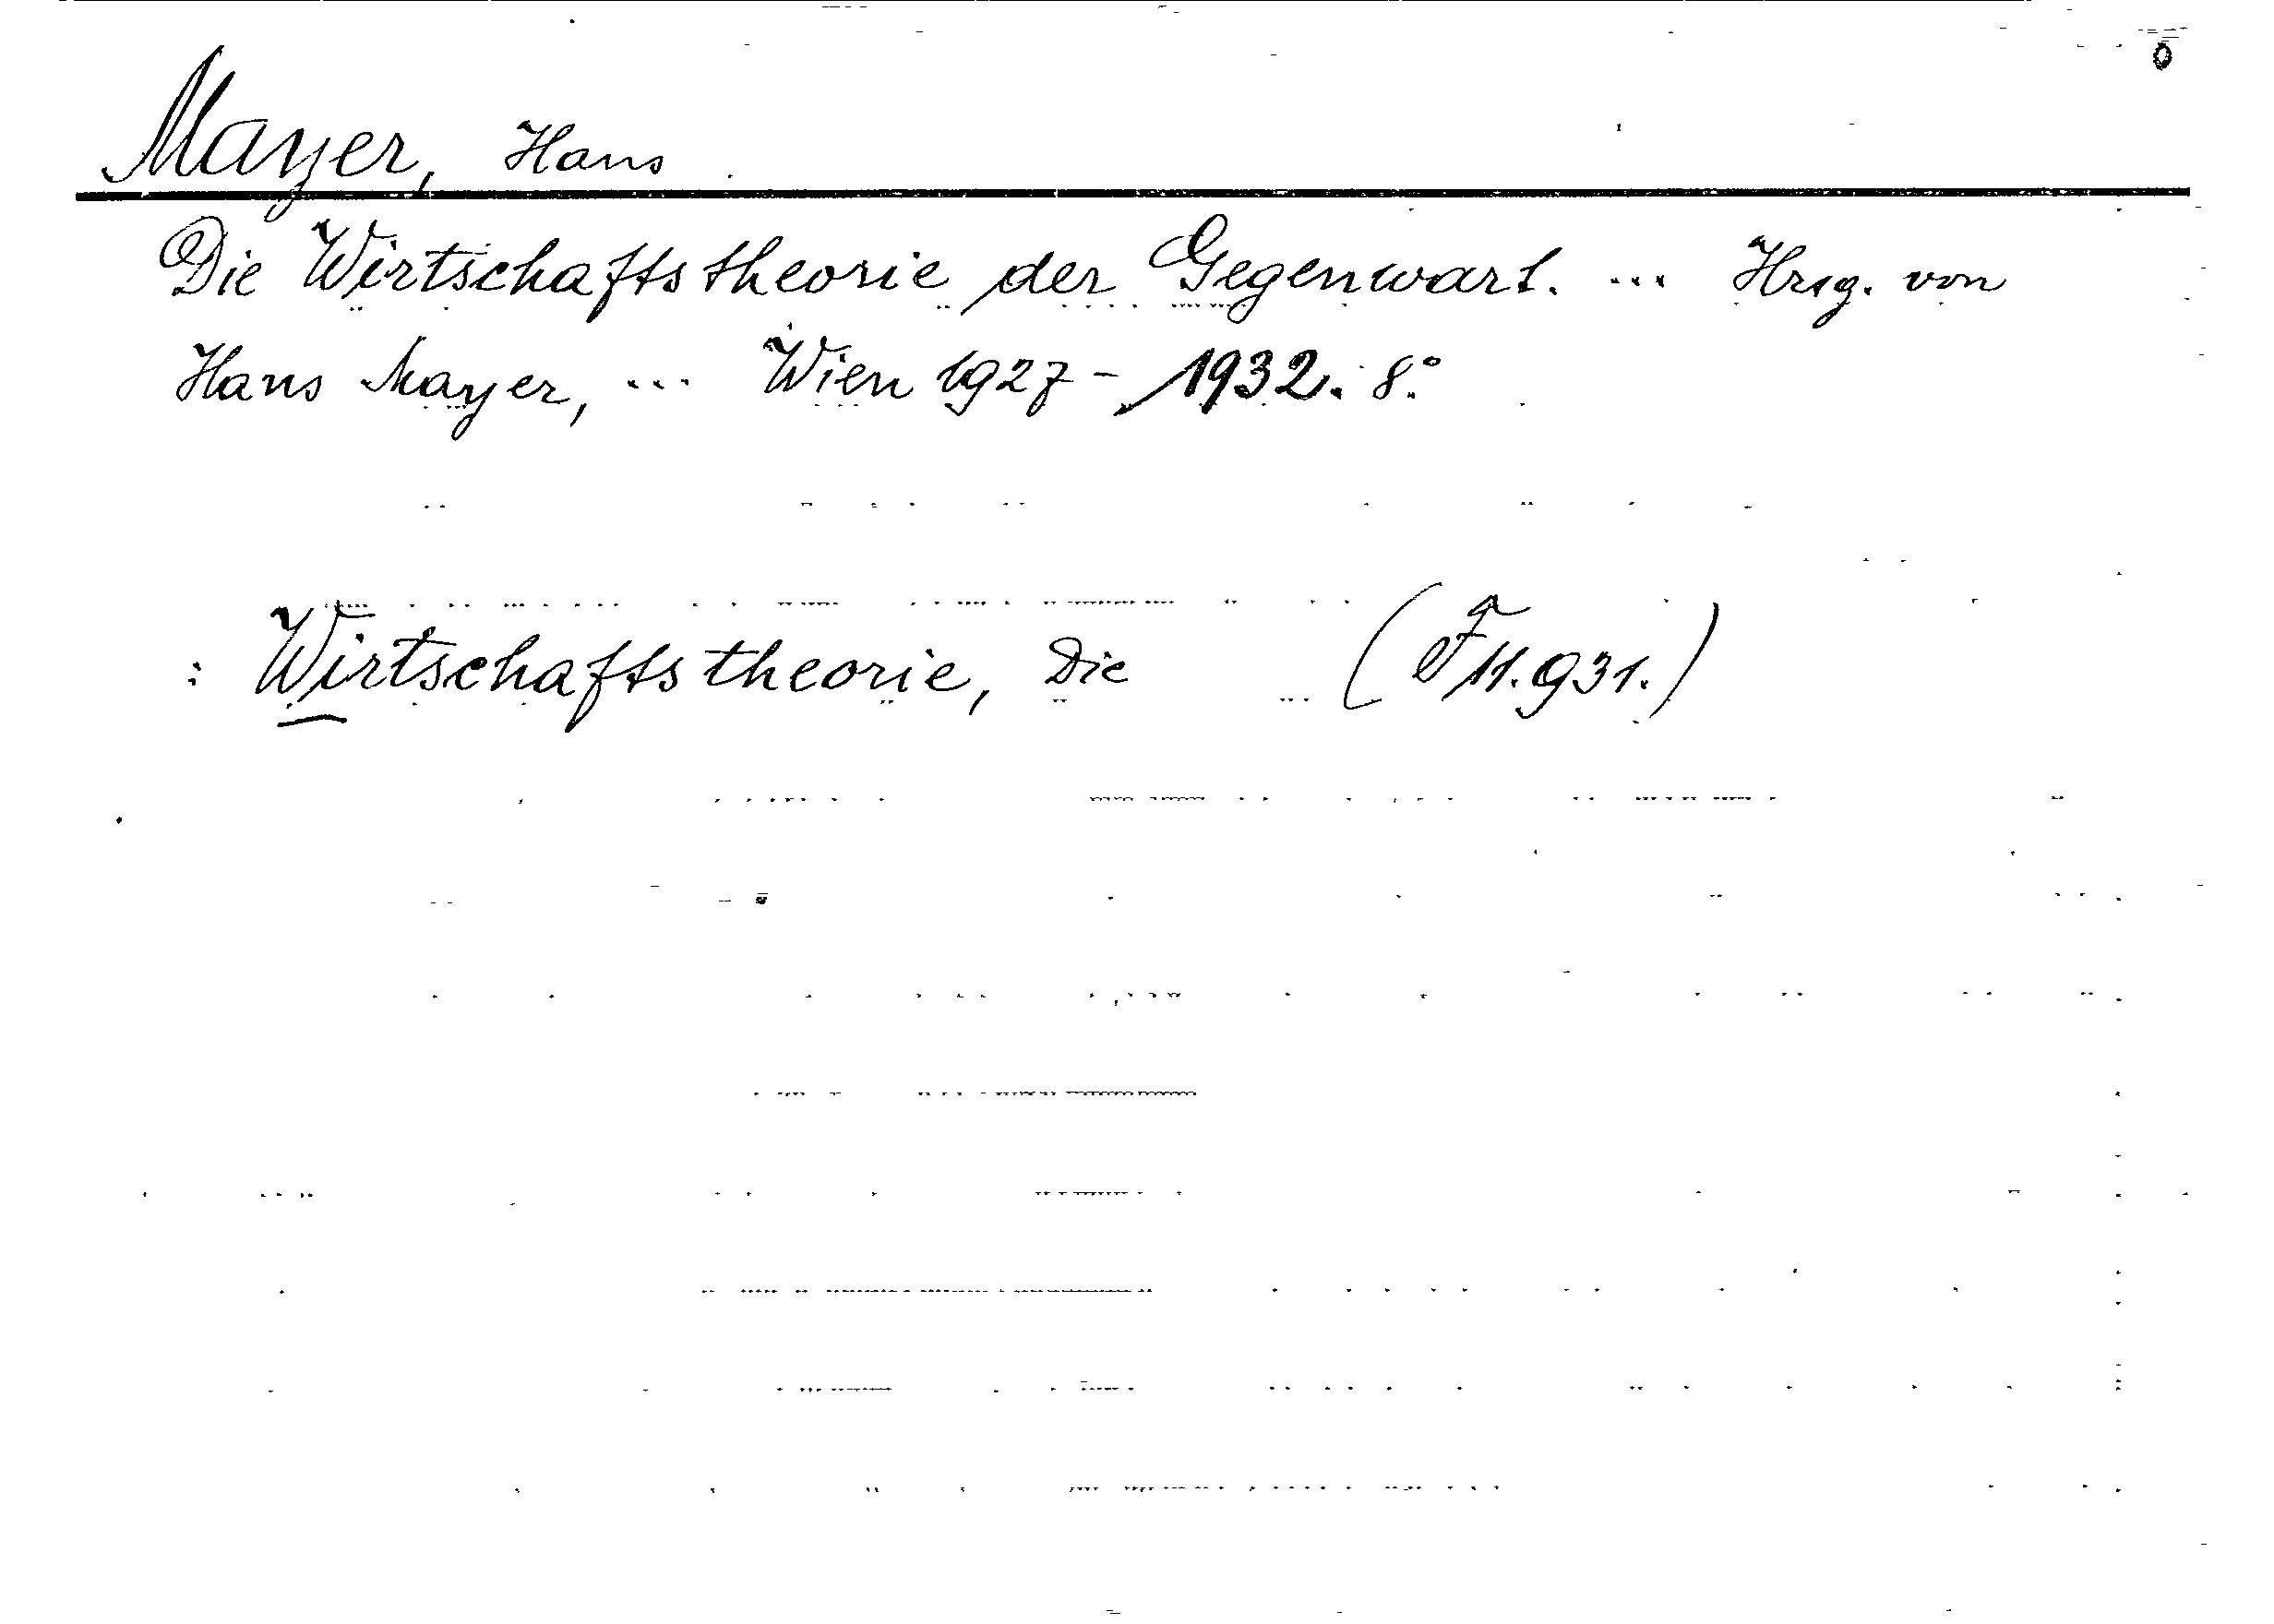 Mayer, Hans
Die Wirtschaftstheorie der Gegenwart. ... Hrsg. von
Hans Mayer, ... Wien 1927-1932. 8.°
: Wirtschaftstheorie, Die (F 11.931.)